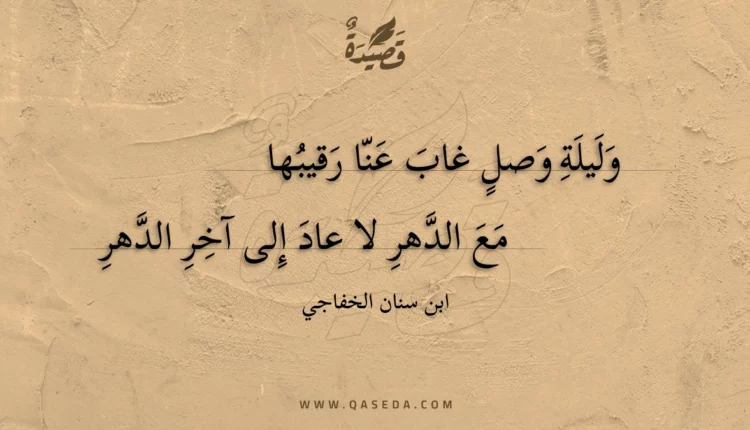 قَصِيْدَةٌ
وَلَيلَةِ وَصلٍ غابَ عَنّا رَقيبُها
مَعَ الدَّهرِ لا عادَ إِلى آخِرِ الدَّهرِ
ابن سنان الخفاجي
WWW.QASEDA.COM